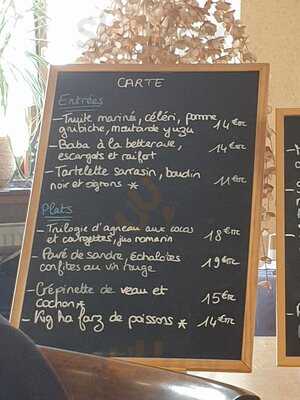 CARTE
Entrées
- Truite mariné, céléri, pomme
grubiche, moutarde yuzu 14€TTC
- Baba à la betterave,
escargots et raifort 14€TTC
- Tartelette sarrasin, boudin
noir et oignons * 11€TTC
Plats
- Trilogie d'agneau aux cocos
et courgettes, jus romarin 18€TTC
- Pavé de sandre, échalotes
confites au vin rouge 19€TTC
- Crépinette de veau et
cochon * 15€TTC
- Kig ha farz de poissons * 14€TTC